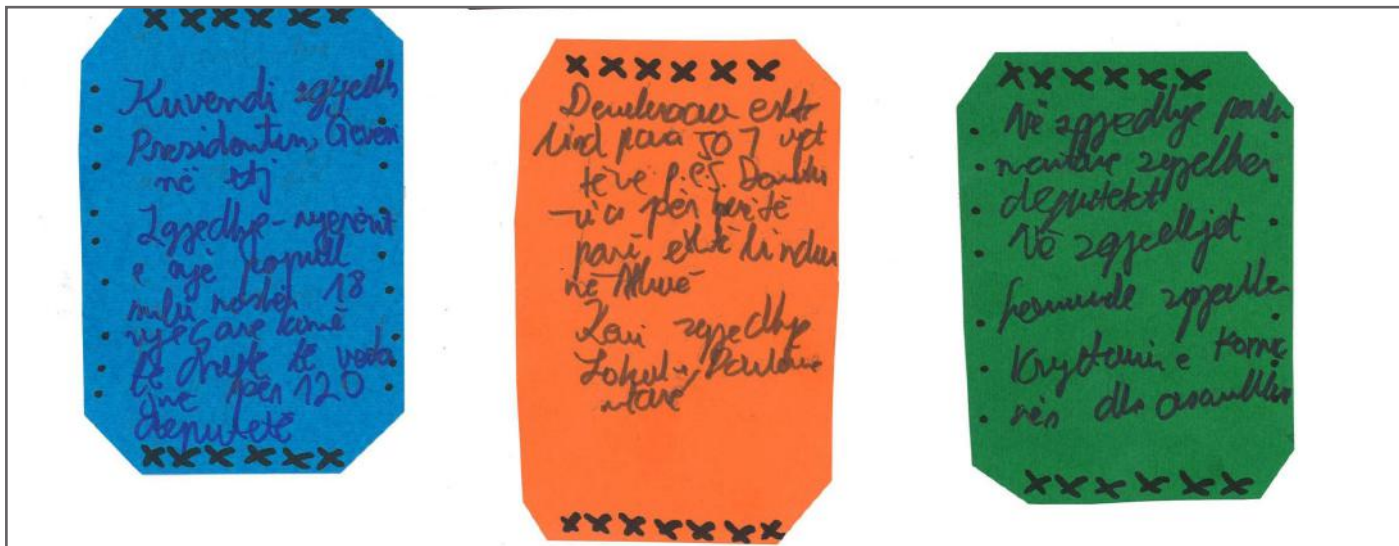 Kuvendi zgjedh
Presidentin, Qeveri
në etj
Zgjedhje - njerëzit
e një popull
mbi moshën 18
vjeçare kanë
të drejt të voto
jnë për 120
deputetë
Demokracia është
lind para 507 vjet
tëve p.e.s. Demokra
-cia për herë të
parë është lindur
në Athinë
Kemi zgjedhje
Lokal, Parlame
ntare
Në zgjedhje parla
mentare zgjedhen
deputetët
Në zgjedhjet
komunale zgjedhen
Kryetarin e Komu
nës dhe asamblen